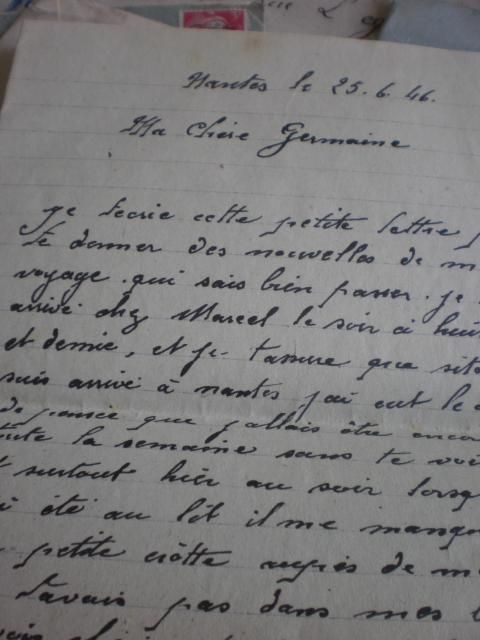 Nantes le 25.6.46.
Ma Chère Germaine
je tecrie cette petite lettre
te donner des nouvelles de m
voyage. qui sais bien passer. je
arrivé chez Marcel le soir à huit
et demie, et je tassure que sito
suis arrivé à nantes j'ai eut le
de pensée que jallais être encor
toute la semaine sans te voi
surtout hier au soir lorsq
i été au lit il me manqu
petite crotte auprès de m
tavais pas dans mes